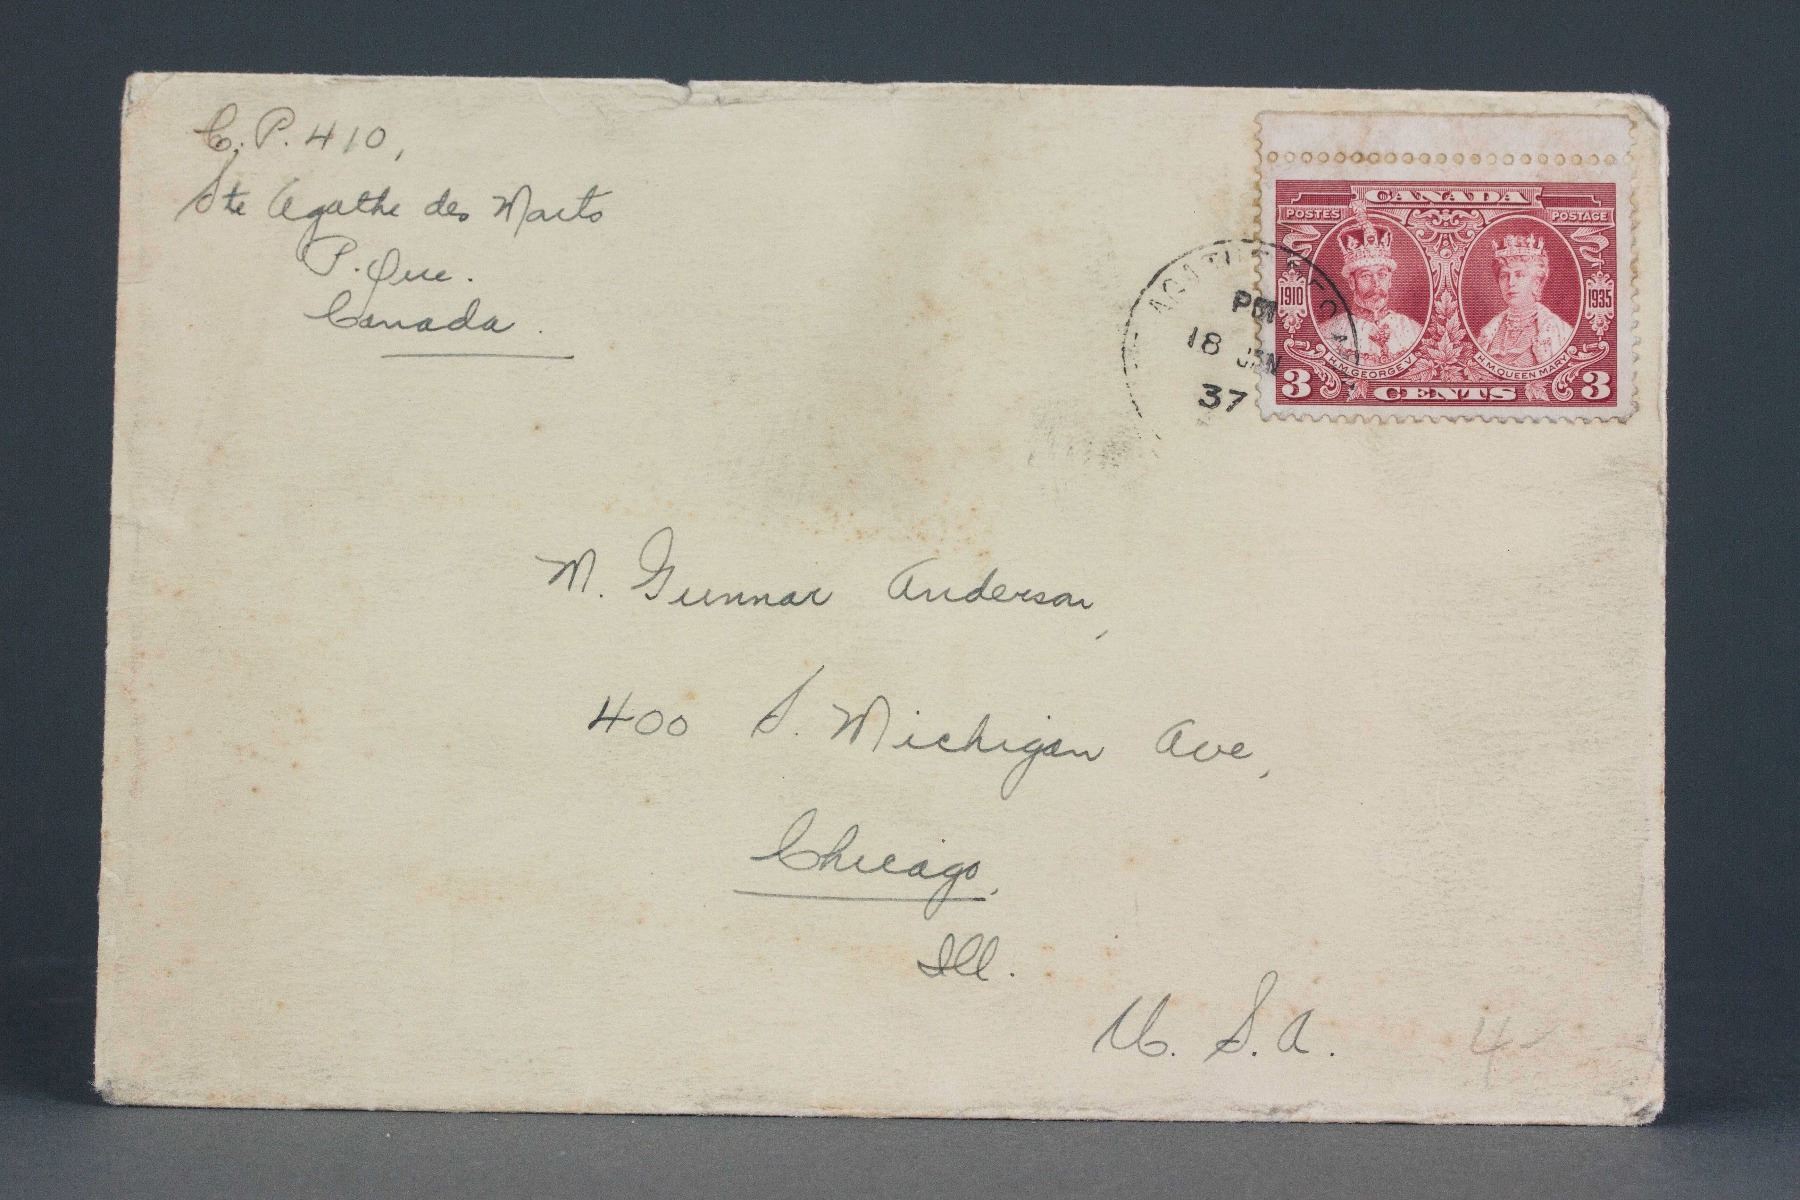 C.P. 410,
Ste Agathe des Monts
P. Que.
Canada.
CANADA
POSTES POSTAGE
1910 1935
H.M. GEORGE V. H.M. QUEEN MARY
3 CENTS 3
PM
18 JAN
37
M. Gunnar Anderson,
400 S. Michigan Ave,
Chicago,
Ill.
U. S. A.
4